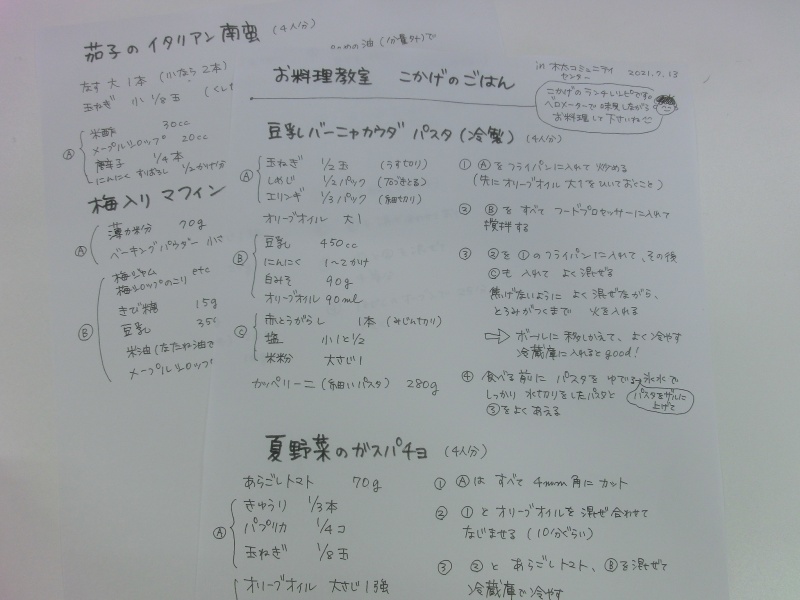 茄子のイタリアン南蛮 (4人分)
なす 大1本 (小なら2本)
玉ねぎ 小 1/8玉
Ⓐ
米酢 30cc
メープルシロップ 20cc
唐辛子 1/4本
にんにく すりおろし 1/2かけ分
梅入り マフィン
Ⓐ
薄力米分 70g
ベーキングパウダー 小
Ⓑ
梅ジャム
梅シロップのこり etc
きび糖 15g
豆乳 35c
米油 (なたね油で
メープルシロップ
の油 (分量外)で
お料理教室 こかげのごはん
in 木太コミュニティセンター 2021.7.13
こかげのランチレシピです。
ベロメーターで味見しながら
お料理して下さいね
豆乳バーニャカウダ パスタ (冷製) (4人分)
Ⓐ
玉ねぎ 1/2玉 (うす切り)
しめじ 1/2パック (石づきとる)
エリンギ 1/3パック (細切り)
オリーブオイル 大1
Ⓑ
豆乳 450cc
にんにく 1〜2かけ
白みそ 90g
オリーブオイル 90ml
Ⓒ
赤とうがらし 1本 (みじん切り)
塩 小1と1/2
米粉 大さじ1
カッペリーニ (細いパスタ) 280g
① Ⓐをフライパンに入れて炒める
(先にオリーブオイル大1をひいておくこと)
② Ⓑをすべてフードプロセッサーに入れて
撹拌する
③ ②を①のフライパンに入れて、その後
Ⓒも入れて よく混ぜる
焦げないように よく混ぜながら、
とろみがつくまで 火を入れる
⇨ ボールに移しかえて、よく冷やす
冷蔵庫に入れるとgood!
④ 食べる前に パスタを ゆでる。氷水で
しっかり 水切りをしたパスタと
③をよくあえる
パスタをザルに
上げて
夏野菜のガスパチョ (4人分)
あらごしトマト 70g
Ⓐ
きゅうり 1/3本
パプリカ 1/4コ
玉ねぎ 1/8玉
オリーブオイル 大さじ1強
① Ⓐは すべて 4mm角にカット
② ①とオリーブオイルを混ぜ合わせて
なじませる (10分ぐらい)
③ ②と あらごしトマト、Ⓑを混ぜて
冷蔵庫で冷やす